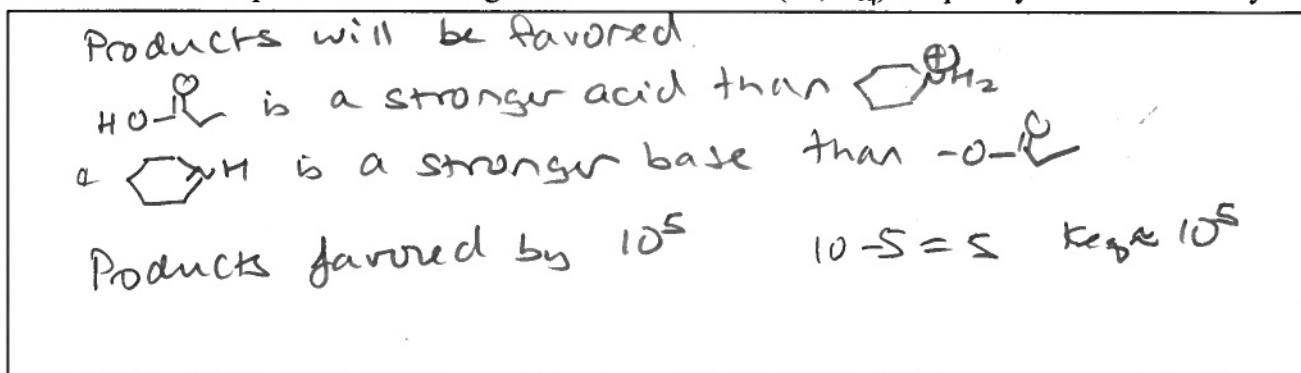 Products will be favored.
HO is a stronger acid than ⊕NH2
NH is a stronger base than -O-
Products favored by 10^5 10-5=5 Keq≈ 10^5